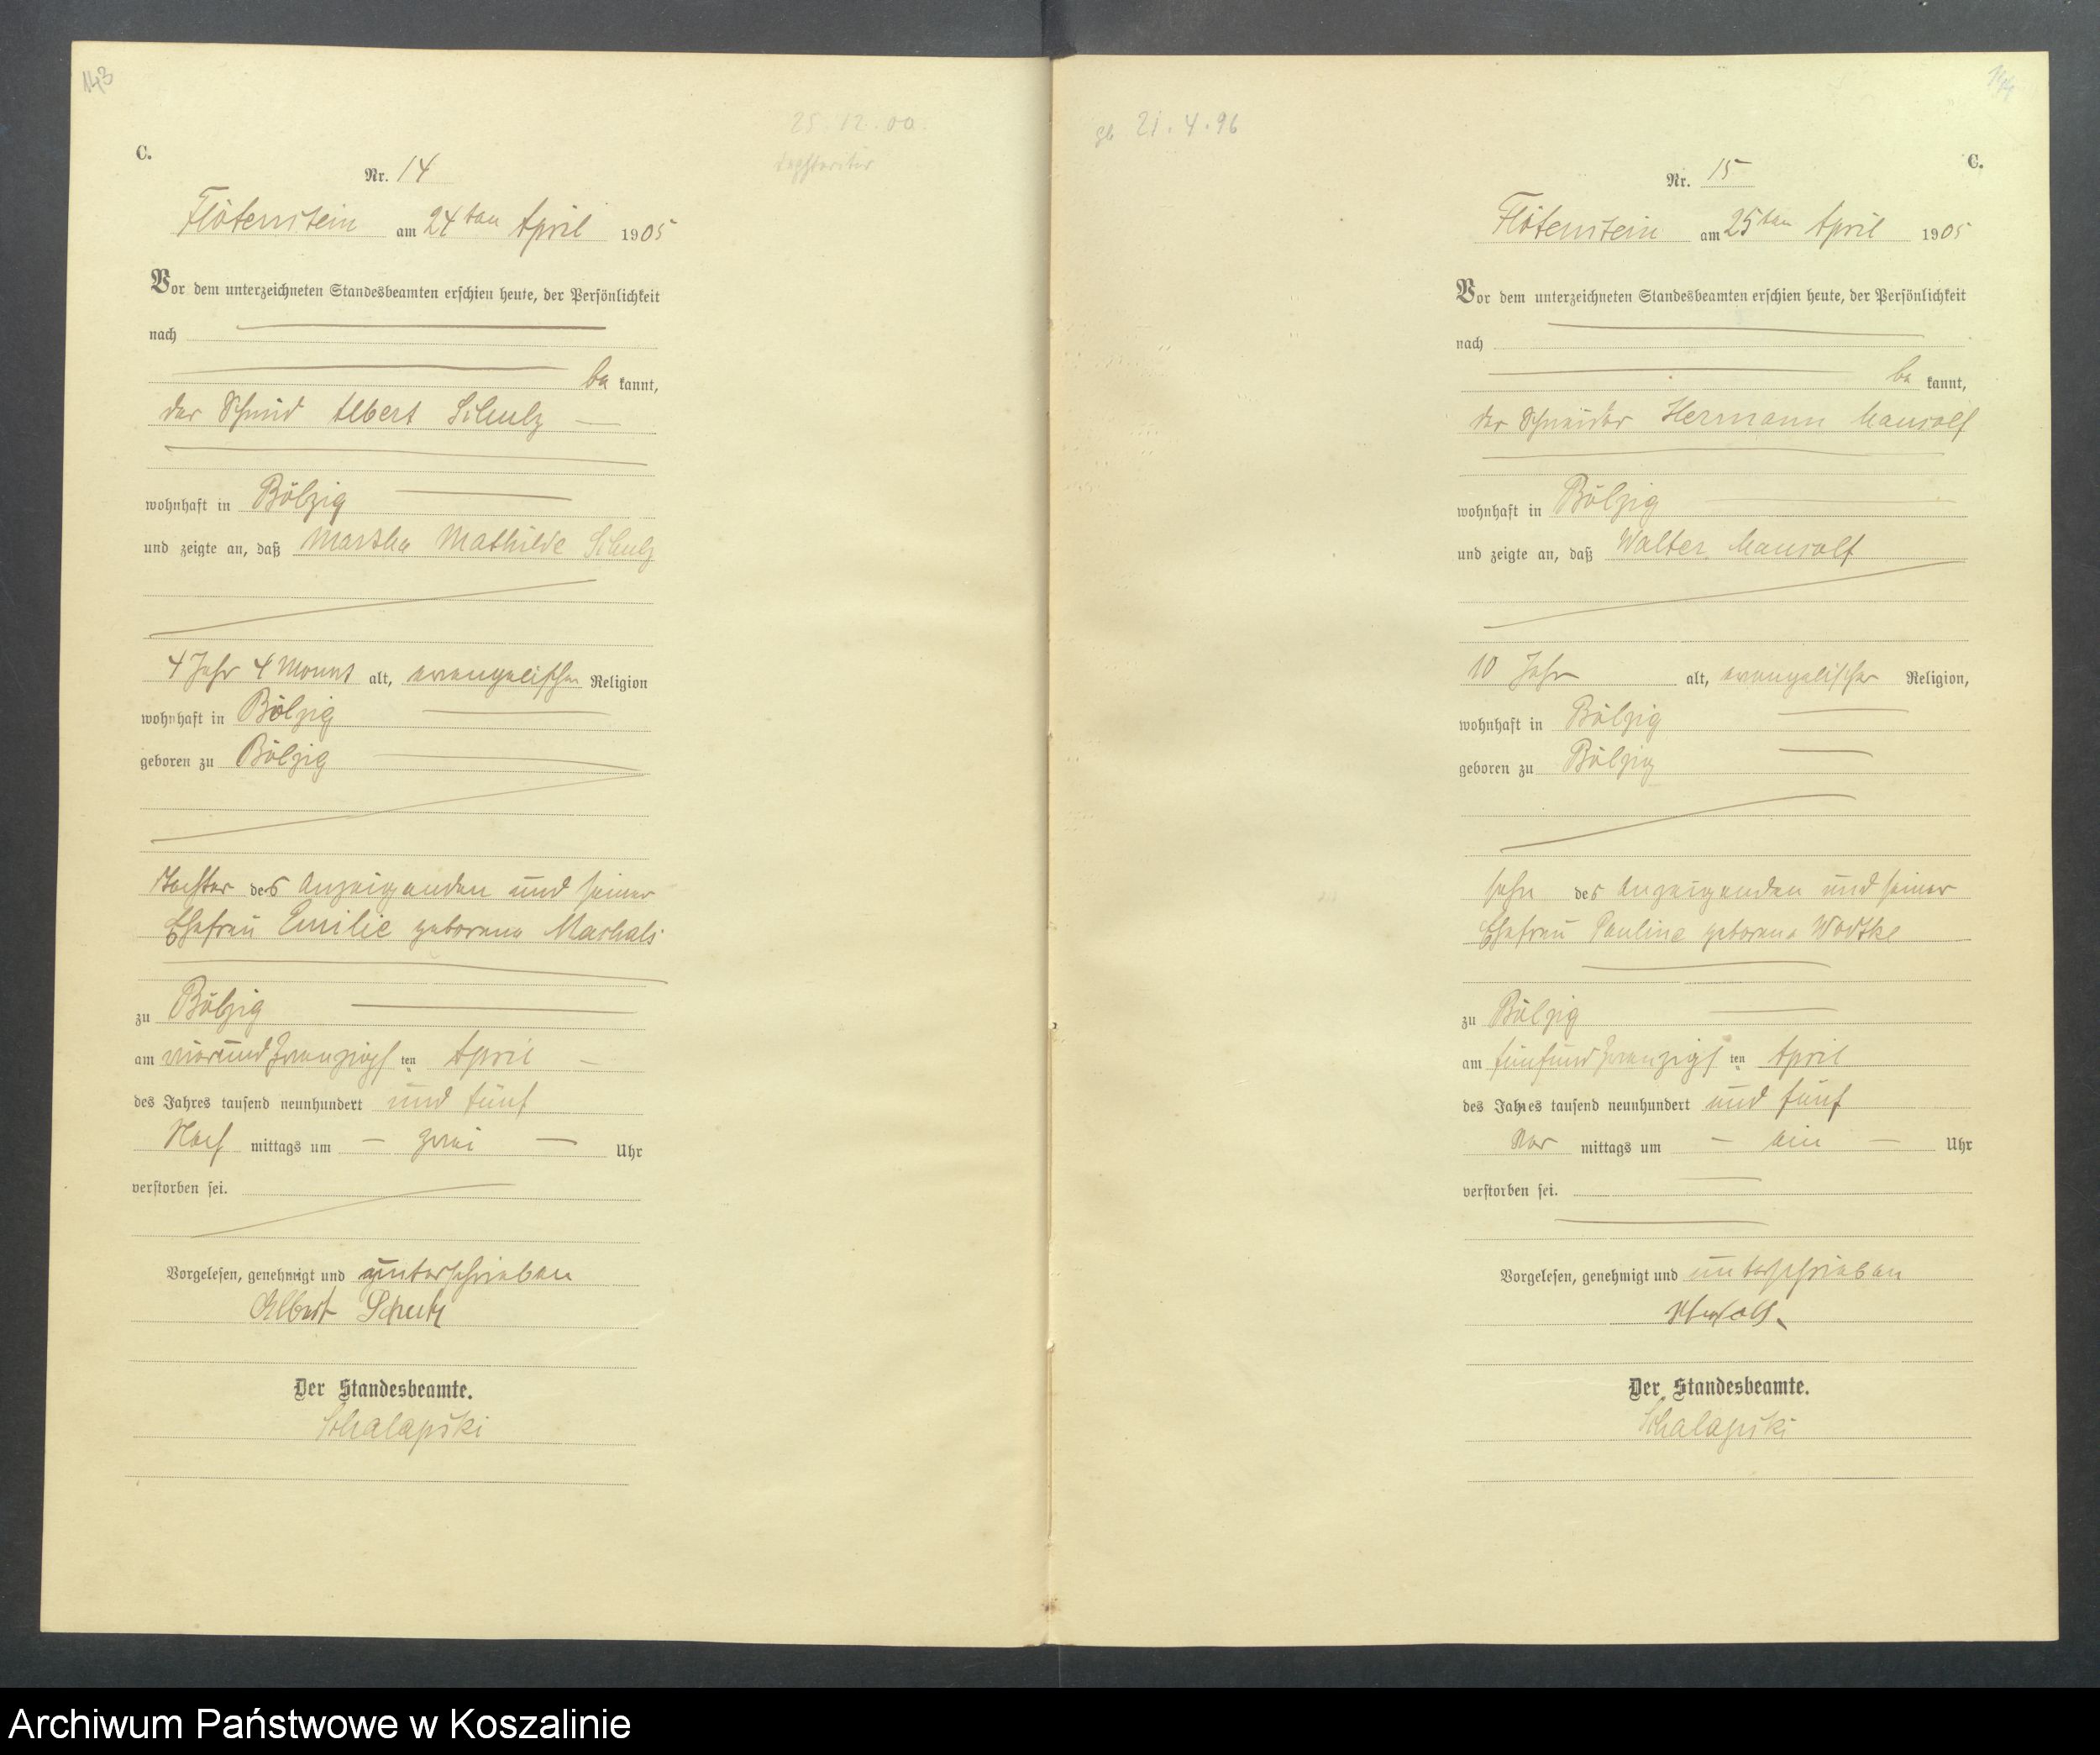 143
25.12.00.
C.
Nr. 14
Flötenstein am 24ten April 1905
Vor dem unterzeichneten Standesbeamten erschien heute, der Persönlichkeit
nach
be kannt,
der Schmid Albert Schulz
wohnhaft in Bölzig
und zeigte an, daß Martha Mathilde Schulz
4 Jahr 4 Monat alt, evangelischer Religion
wohnhaft in Bölzig
geboren zu Bölzig
Tochter des Anzeigenden und seiner
Ehefrau Emilie geborene
zu Bölzig
am vierundzwanzigs ten April
des Jahres tausend neunhundert und fünf
Nach mittags um zwei Uhr
verstorben sei.
Vorgelesen, genehmigt und unterschrieben
Albert Schulz
Der Standesbeamte.
Schalapski
144
gb 21.4.96
C.
Nr. 15
Flötenstein am 25ten April 1905
Vor dem unterzeichneten Standesbeamten erschien heute, der Persönlichkeit
nach
be kannt,
der Schneider Hermann Mansolf
wohnhaft in Bölzig
und zeigte an, daß Walter Mansolf
10 Jahr alt, evangelischer Religion,
wohnhaft in Bölzig
geboren zu Bölzig
Sohn des Anzeigenden und seiner
Ehefrau Pauline geborene Wodtke
zu Bölzig
am fünfundzwanzigs ten April
des Jahres tausend neunhundert und fünf
Vor mittags um ein Uhr
verstorben sei.
Vorgelesen, genehmigt und unterschrieben
Der Standesbeamte.
Schalapski
Archiwum Państwowe w Koszalinie